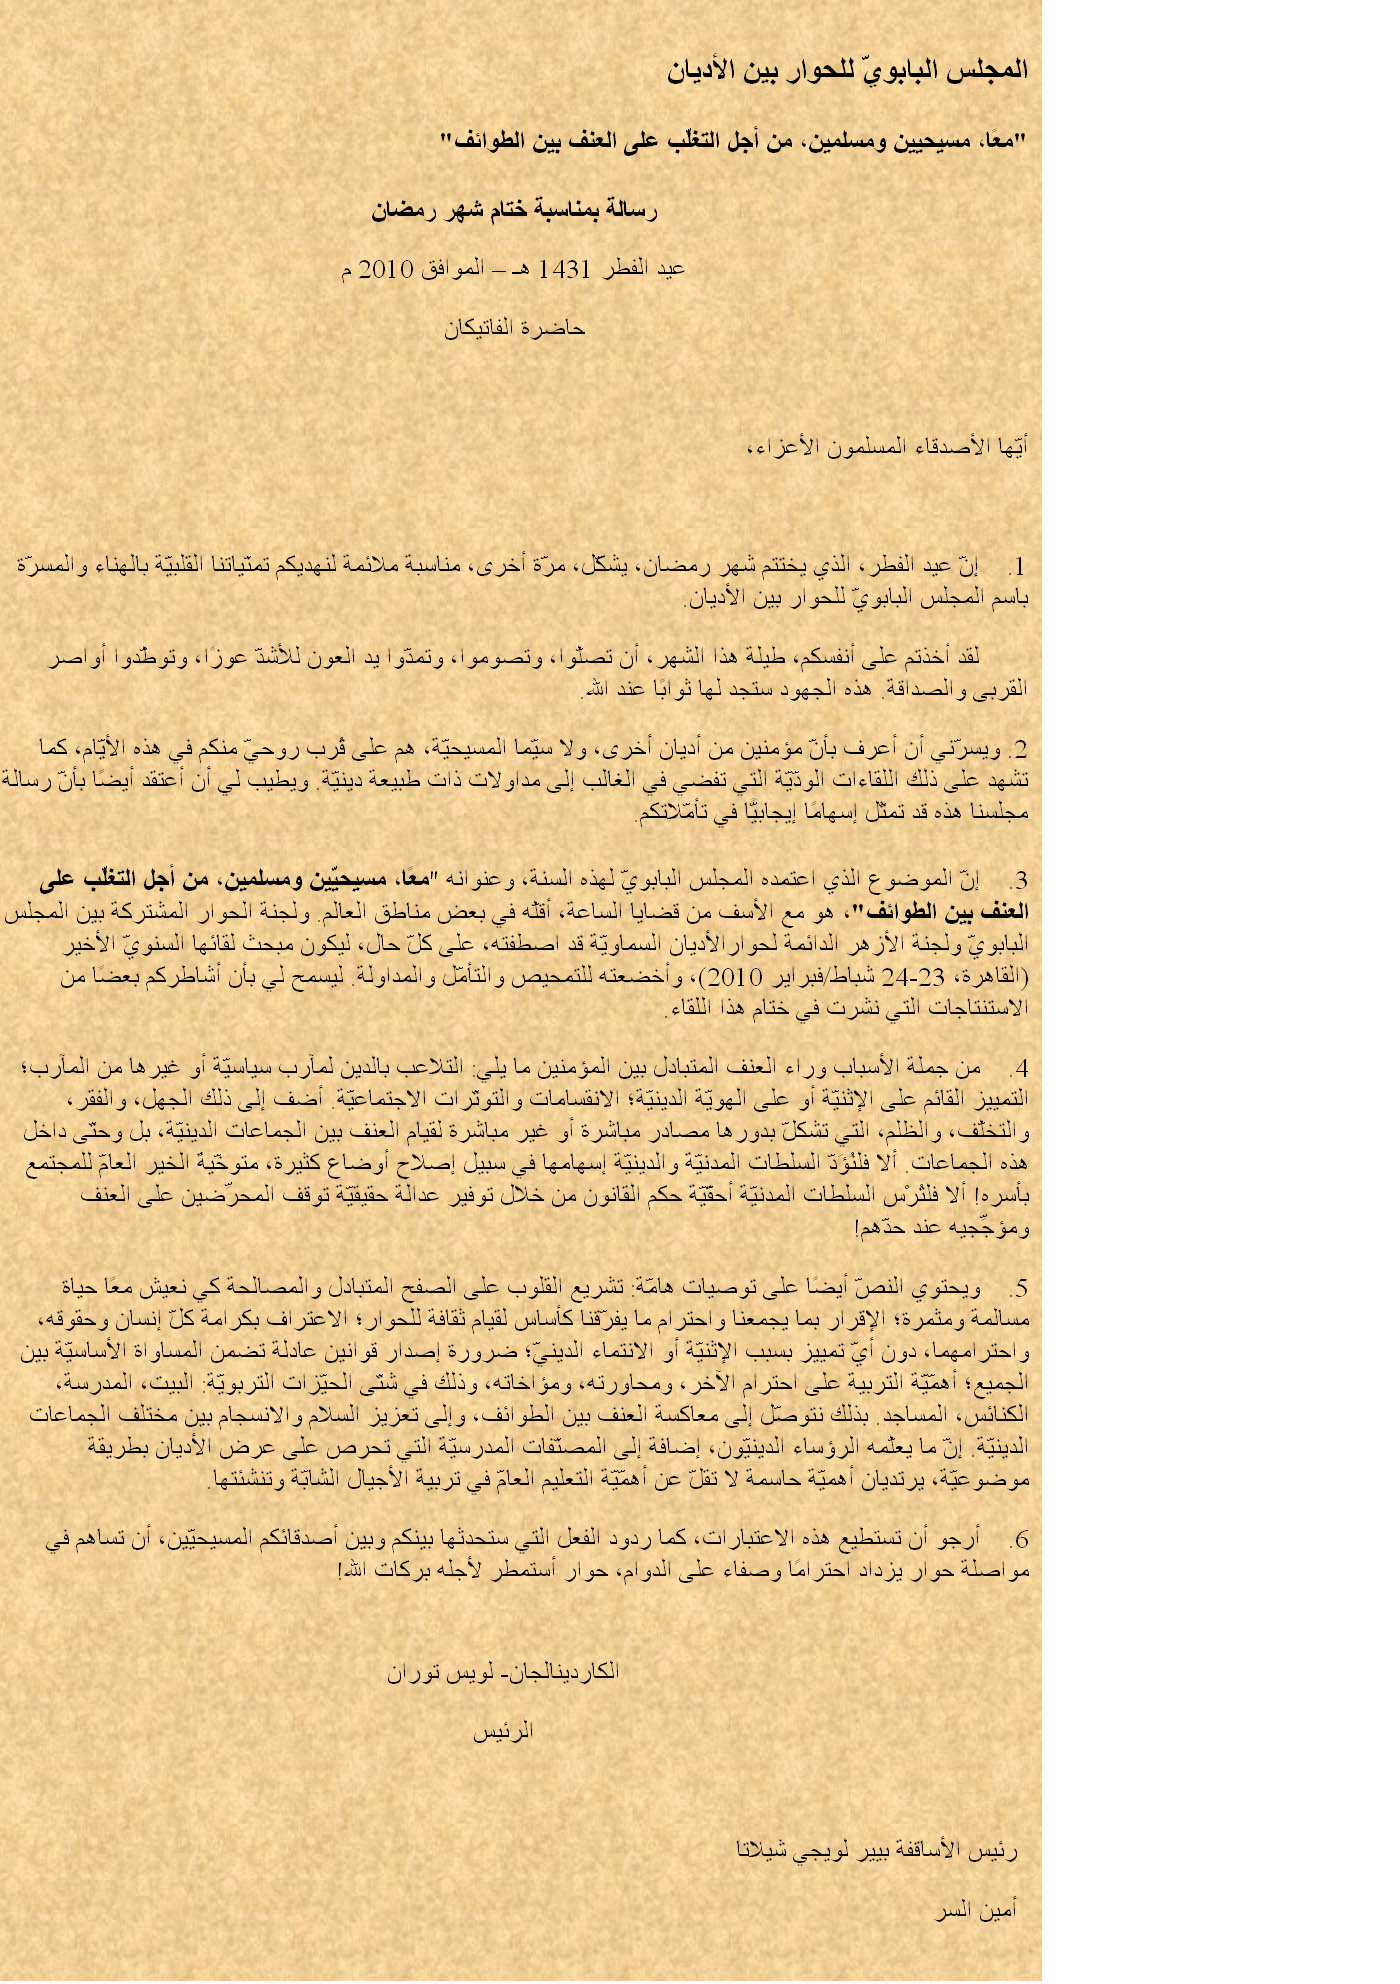 المجلس البابويّ للحوار بين الأديان
"معًا، مسيحيين ومسلمين، من أجل التغلّب على العنف بين الطوائف"
رسالة بمناسبة ختام شهر رمضان
عيد الفطر 1431 هـ – الموافق 2010 م
حاضرة الفاتيكان
أيّها الأصدقاء المسلمون الأعزاء،
1. إنّ عيد الفطر، الذي يختتم شهر رمضان، يشكّل، مرّة أخرى، مناسبة ملائمة لنهديكم تمنّياتنا القلبيّة بالهناء والمسرّة
باسم المجلس البابويّ للحوار بين الأديان.
لقد أخذتم على أنفسكم، طيلة هذا الشهر، أن تصلّوا، وتصوموا، وتمدّوا يد العون للأشدّ عوزًا، وتوطّدوا أواصر
القربى والصداقة. هذه الجهود ستجد لها ثوابًا عند الله.
2. ويسرّني أن أعرف بأنّ مؤمنين من أديان أخرى، ولا سيّما المسيحيّة، هم على قُرب روحيّ منكم في هذه الأيّام، كما
تشهد على ذلك اللقاءات الودّيّة التي تفضي في الغالب إلى مداولات ذات طبيعة دينيّة. ويطيب لي أن أعتقد أيضًا بأنّ رسالة
مجلسنا هذه قد تمثّل إسهامًا إيجابيًّا في تأمّلاتكم.
3. إنّ الموضوع الذي اعتمده المجلس البابويّ لهذه السنة، وعنوانه "معًا، مسيحيّين ومسلمين، من أجل التغلّب على
العنف بين الطوائف"، هو مع الأسف من قضايا الساعة، أقلّه في بعض مناطق العالم. ولجنة الحوار المشتركة بين المجلس
البابويّ ولجنة الأزهر الدائمة لحوارالأديان السماويّة قد اصطفته، على كلّ حال، ليكون مبحث لقائها السنويّ الأخير
(القاهرة، 23-24 شباط/فبراير 2010)، وأخضعته للتمحيص والتأمّل والمداولة. ليسمح لي بأن أشاطركم بعضًا من
الاستنتاجات التي نشرت في ختام هذا اللقاء.
4. من جملة الأسباب وراء العنف المتبادل بين المؤمنين ما يلي: التلاعب بالدين لمآرب سياسيّة أو غيرها من المآرب؛
التمييز القائم على الإثنيّة أو على الهويّة الدينيّة؛ الانقسامات والتوتّرات الاجتماعيّة. أضف إلى ذلك الجهل، والفقر،
والتخلّف، والظلم، التي تشكلّ بدورها مصادر مباشرة أو غير مباشرة لقيام العنف بين الجماعات الدينيّة، بل وحتّى داخل
هذه الجماعات. ألا فلتُؤَدّ السلطات المدنيّة والدينيّة إسهامها في سبيل إصلاح أوضاع كثيرة، متوخّيةً الخير العامّ للمجتمع
بأسره! ألا فلتُرْسِ السلطات المدنيّة أحقّيّة حكم القانون من خلال توفير عدالة حقيقيّة توقف المحرّضين على العنف
ومؤجّجيه عند حدّهم!
5. ويحتوي النصّ أيضًا على توصيات هامّة: تشريع القلوب على الصفح المتبادل والمصالحة كي نعيش معًا حياة
مسالمة ومثمرة؛ الإقرار بما يجمعنا واحترام ما يفرّقنا كأساس لقيام ثقافة للحوار؛ الاعتراف بكرامة كلّ إنسان وحقوقه،
واحترامهما، دون أيّ تمييز بسبب الإثنيّة أو الانتماء الدينيّ؛ ضرورة إصدار قوانين عادلة تضمن المساواة الأساسيّة بين
الجميع؛ أهمّيّة التربية على احترام الآخر، ومحاورته، ومؤاخاته، وذلك في شتّى الحيّزات التربويّة: البيت، المدرسة،
الكنائس، المساجد. بذلك نتوصّل إلى معاكسة العنف بين الطوائف، وإلى تعزيز السلام والانسجام بين مختلف الجماعات
الدينيّة. إنّ ما يعلّمه الرؤساء الدينيّون، إضافة إلى المصنّفات المدرسيّة التي تحرص على عرض الأديان بطريقة
موضوعيّة، يرتديان أهميّة حاسمة لا تقلّ عن أهمّيّة التعليم العامّ في تربية الأجيال الشابّة وتنشئتها.
6. أرجو أن تستطيع هذه الاعتبارات، كما ردود الفعل التي ستحدثها بينكم وبين أصدقائكم المسيحيّين، أن تساهم في
مواصلة حوار يزداد احترامًا وصفاء على الدوام، حوار أستمطر لأجله بركات الله!
الكاردينالجان- لويس توران
الرئيس
رئيس الأساقفة بيير لويجي شيلاتا
أمين السر